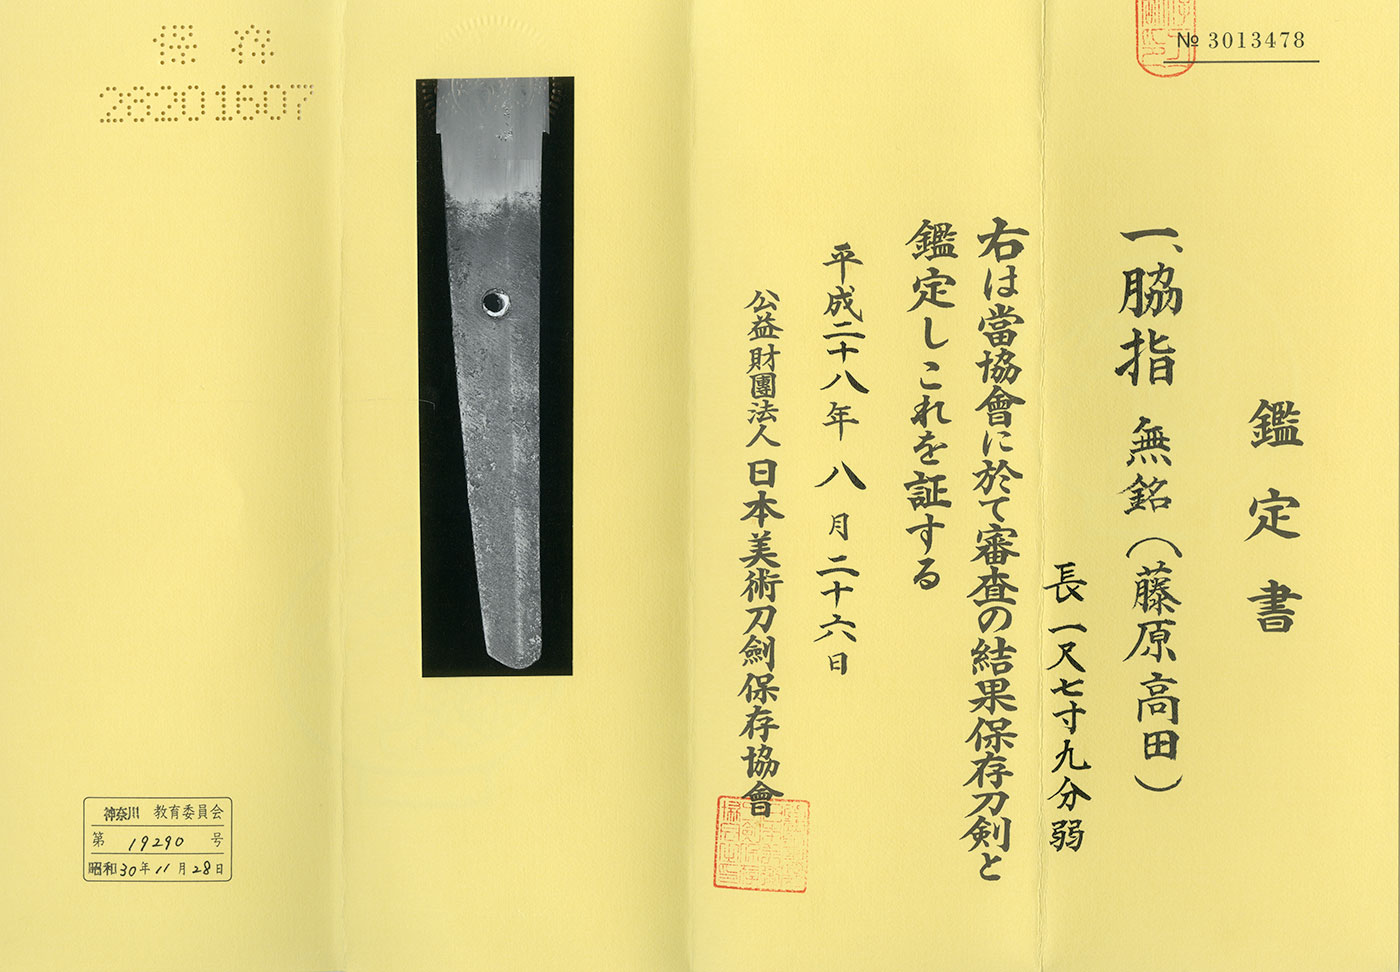 № 3013478
鑑定書
一、脇指 無銘(藤原高田)
長一尺七寸九分弱
右は當協會に於て審査の結果保存刀剣と
鑑定しこれを証する
平成二十八年 八 月 二十六日
公益財團法人 日本美術刀劍保存協會
保存
28201607
神奈川 教育委員会
第 19290 号
昭和30年11月28日